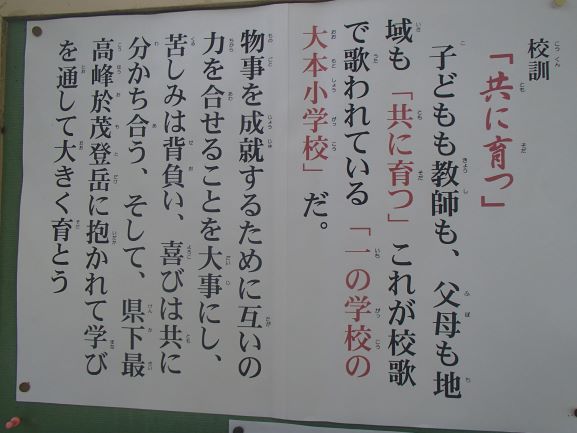 校訓
「共に育つ」
子どもも教師も、父母も地
域も「共に育つ」これが校歌
で歌われている「一の学校の
大本小学校」だ。
物事を成就するために互いの
力を合せることを大事にし、
苦しみは背負い、喜びは共に
分かち合う、そして、県下最
高峰於茂登岳に抱かれて学び
を通して大きく育とう